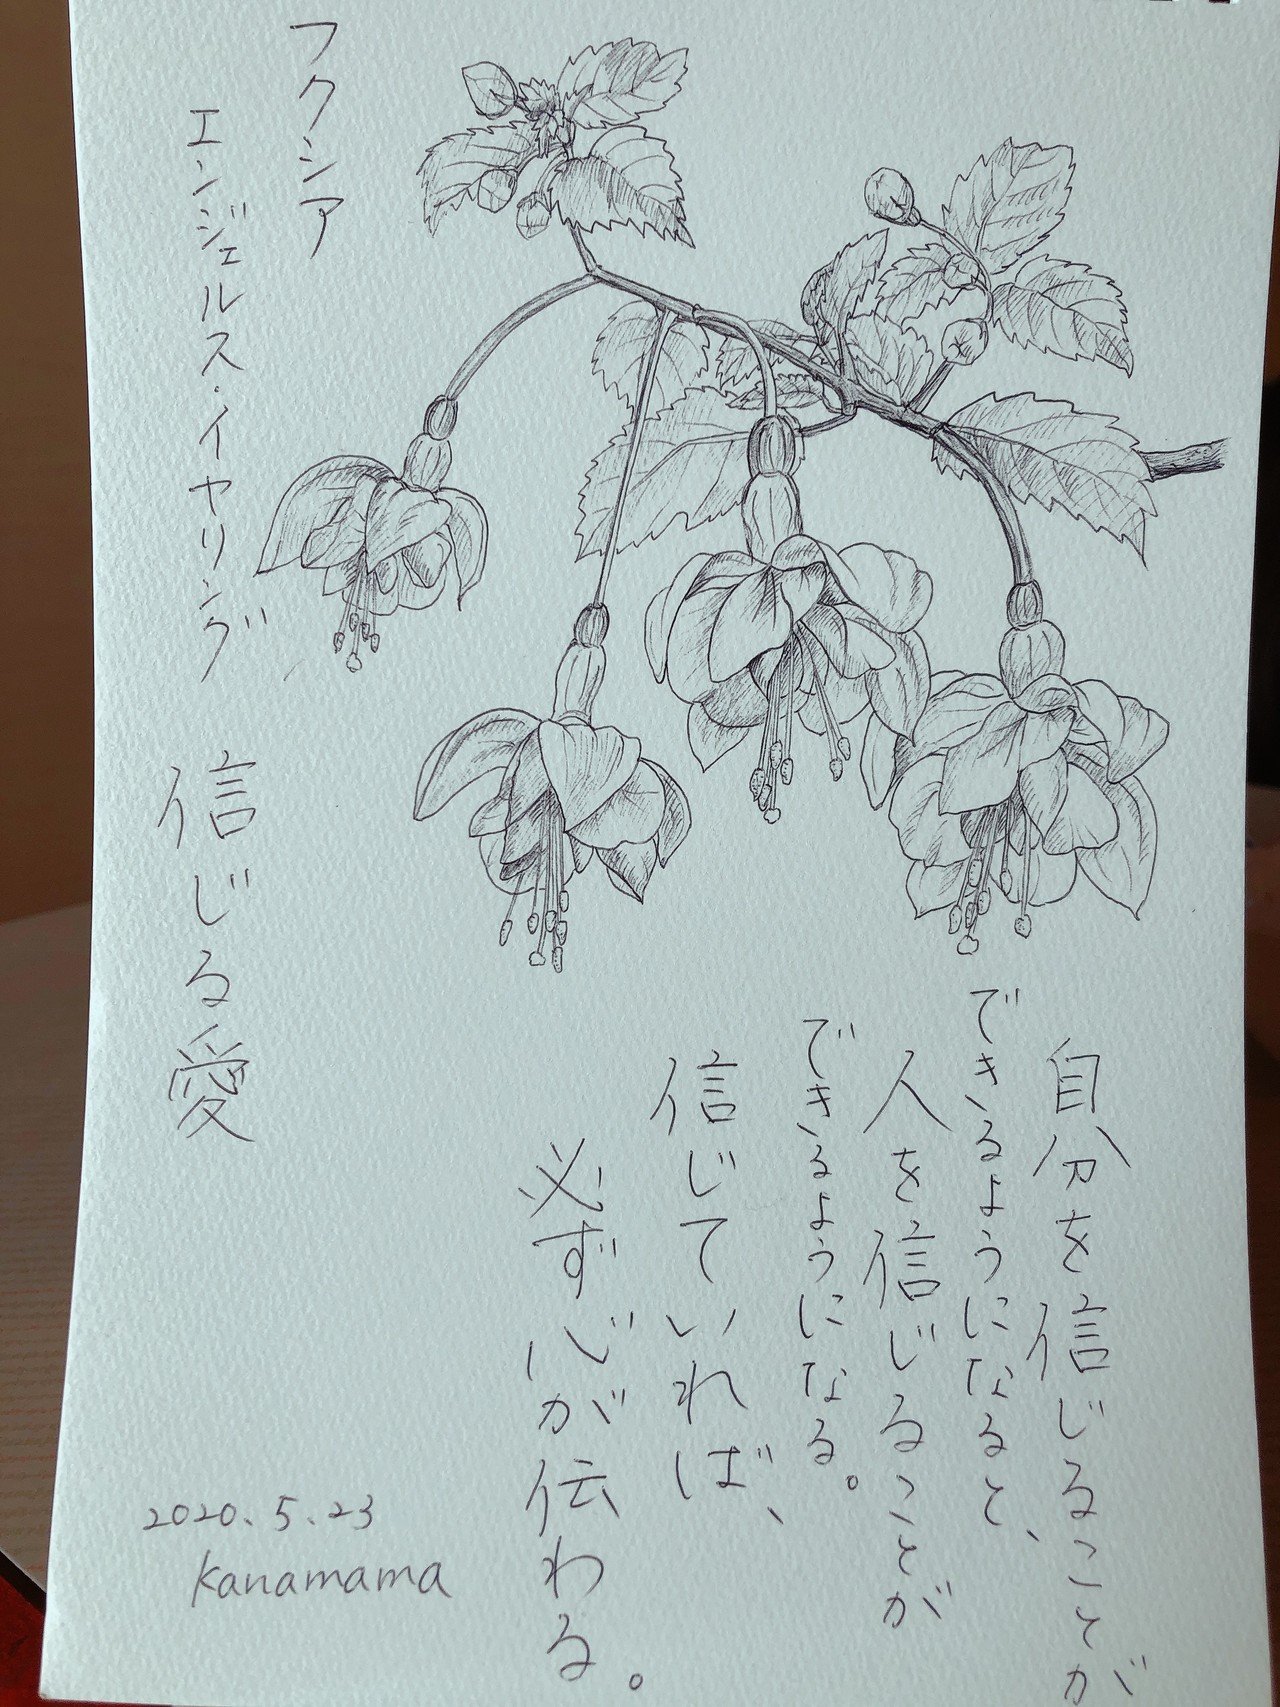 フクシア
エンジェルス・イヤリング
信じる愛
自分を信じることが
できるようになると、
人を信じることが
できるようになる。
信じていれば、
必ず心が伝わる。
2020.5.23
kanamama